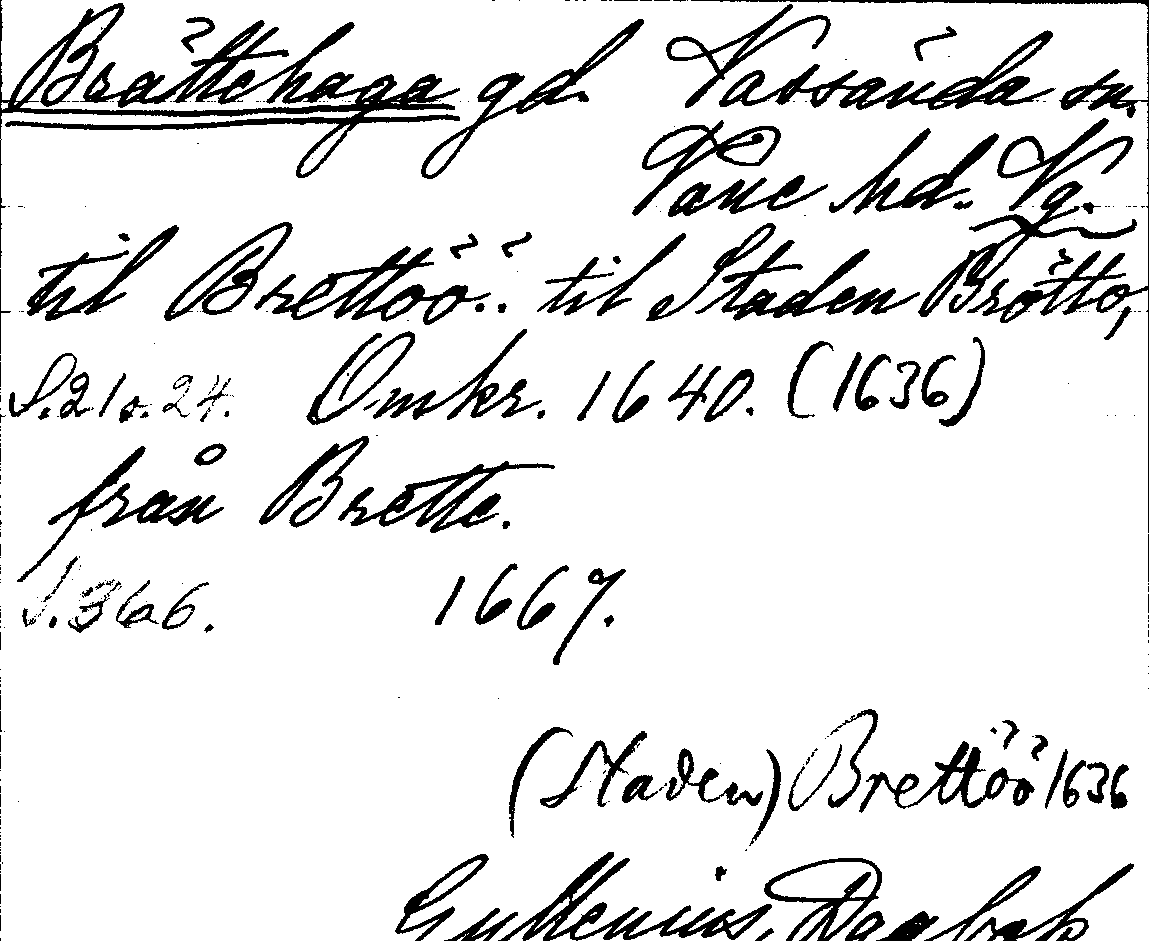 Brättehaga gd. Vassända sn.
Väne hd. Vg.
til Brettöö.. til Staden Bröttö,
S.21 o. 24. Omkr. 1640. (1636)
från Brette.
S.366. 1667.
(Staden) Brettöö 1636
Gyllenius, Dagbok